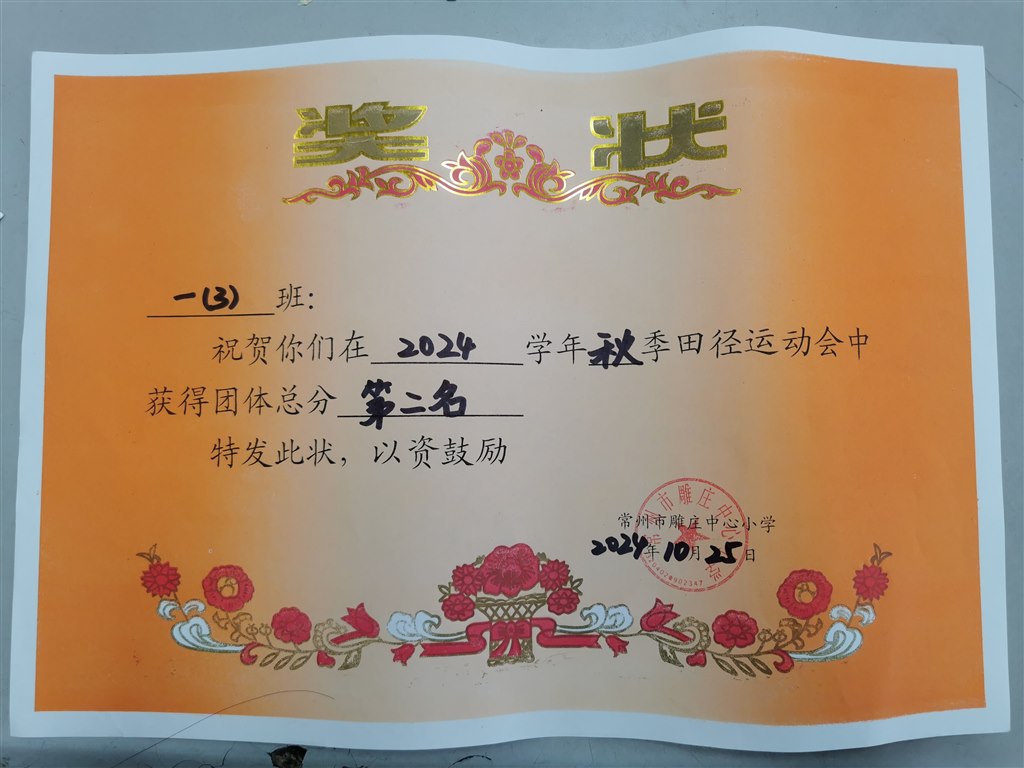 奖状
一(3)班:
祝贺你们在2024学年秋季田径运动会中
获得团体总分第二名
特发此状，以资鼓励
常州市雕庄中心小学
2024年10月25日